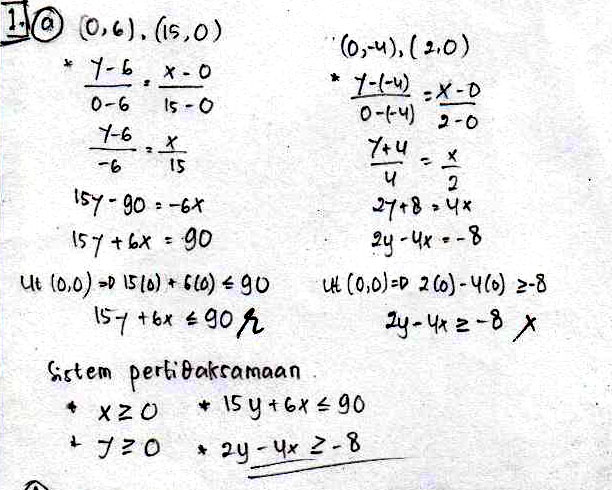 1. a (0,6), (15,0)
* y-6/0-6 = x-0/15-0
y-6/-6 = x/15
15y - 90 = -6x
15y + 6x = 90
Ut (0,0) => 15(0) + 6(0) ≤ 90
15y + 6x ≤ 90
(0,-4), (2,0)
* y-(-4)/0-(-4) = x-0/2-0
y+4/4 = x/2
2y+8 = 4x
2y - 4x = -8
Ut (0,0) => 2(0) - 4(0) ≥ -8
2y - 4x ≥ -8
Sistem pertidaksamaan
* x ≥ 0 * 15y + 6x ≤ 90
* y ≥ 0 * 2y - 4x ≥ -8